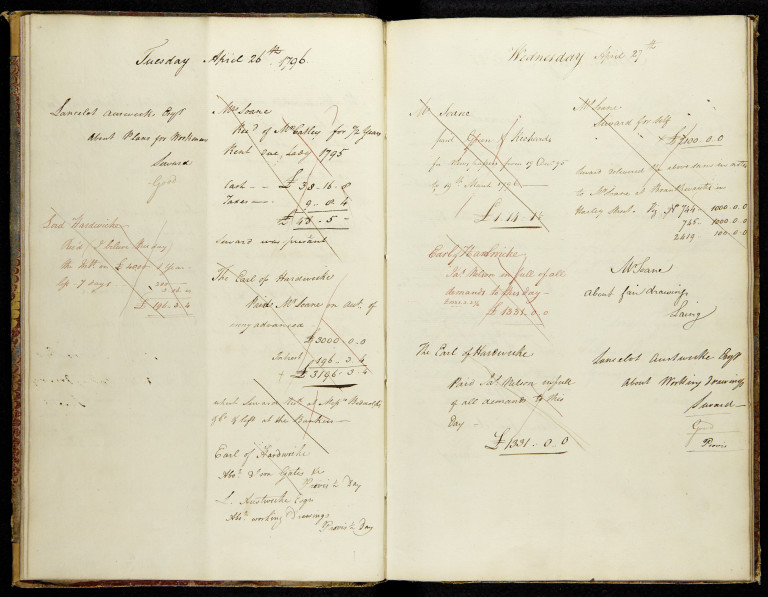 Tuesday April 26th 1796.
Lancelot Austwicke Esqr
About Plans for Workmen
Seward
Good
Lord Hardwicke
Paid J. Nelson this day
the debt on £4000 1 Year
£ 196.3.4
Mr Soane
Recd of Mr Oatley for 1/2 Years
Rent due, Lady 1795
Cash - - £38-16-8
Taxes - - 9-8.4
£48-5-
Seward was present
The Earl of Hardwicke
Paid Mr Soane on acct. of
money advanced
£3000.0.0
Interest 196-3.4
£3196.3.4
which Seward
left at the Bankers
Earl of Hardwicke
Abot. Iron Gates &c
Provis 1/2 Day
L. Austwicke Esqr
Abt. working Drawings
Provis 1/2 Day
Wednesday April 27th
Mr Soane
paid Richards
for Newspapers from 19 Decr 95
to 19th March 1796
£1.14.
Earl Hardwicke
Jas. Nelson in full of all
demands to this day
£1331.0.0
The Earl of Hardwicke
Paid Jas. Nelson in full
of all demands to this
Day -
£1331..0.0
Mr Soane
Seward for self
£2100.0.0
Seward returned the above same
to Mr Soane at
Harley Street. by No 744 1000.0.0
745.. 1000.0.0
2419 100.0.0
Mr Soane
About fair drawings
Laing
Lancelot Austwicke Esqr
About Working drawings
Seward -
Do
Provis